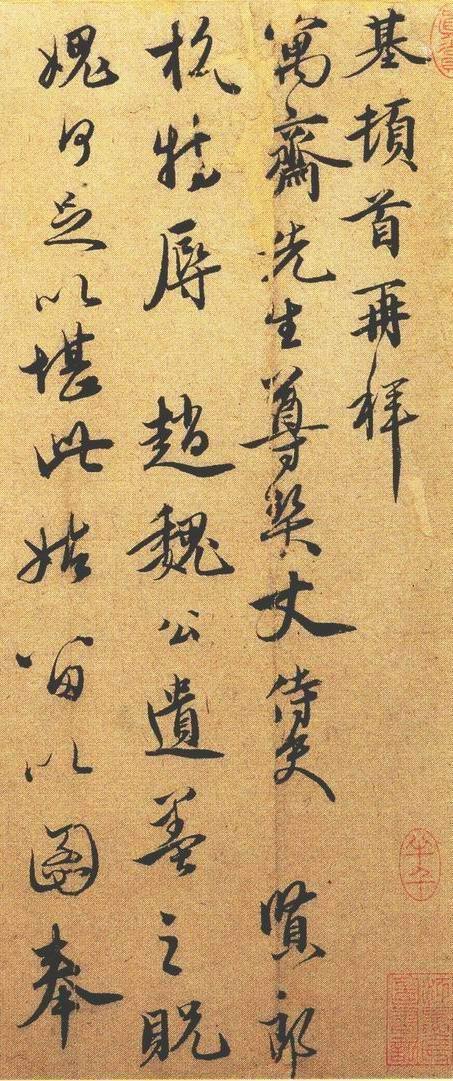 基頓首再拜
寓齋先生尊契丈侍史 賢郎
杭特辱 趙魏公遺墨之貺
媿何足以堪此姑留以圖奉